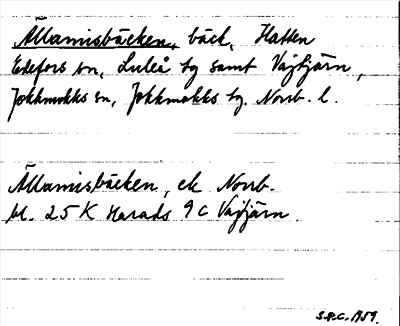 Ällamisbäcken, bäck, Hatten
Edefors sn, Luleå tg samt Vajtjärn,
Jokkmokks sn, Jokkmokks tg. Norrb. l.
Ällamisbäcken, ek Norrb.
bl. 25 K Harads 9 C Vajtjärn.
S.P.C. 1959.